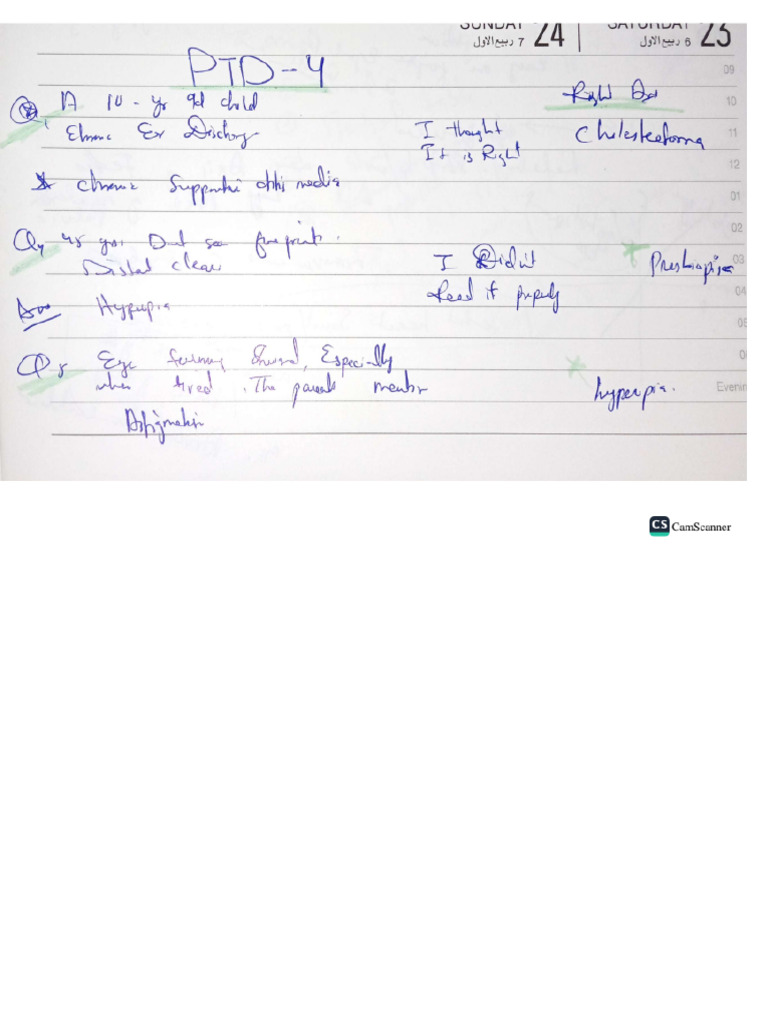 SUNDAY 24 | SATURDAY 23
7 ربيع الاول 6 ربيع الاول
PTD-4
A 10-yr old child Right Ans
Chronic Ear Discharg I thought Cholesteatoma
It is Right
* Chronic Suppurative otitis media
Q 45 yrs. Dont see fine prints. I Didn't Presbiopia
Distant clear Read it properly
Ans Hyperopia
Q Eye turning inward, Especially
when tired. The parents mention hyperopia.
Astigmatism
09
10
11
12
01
02
03
04
05
Evenin
CS CamScanner